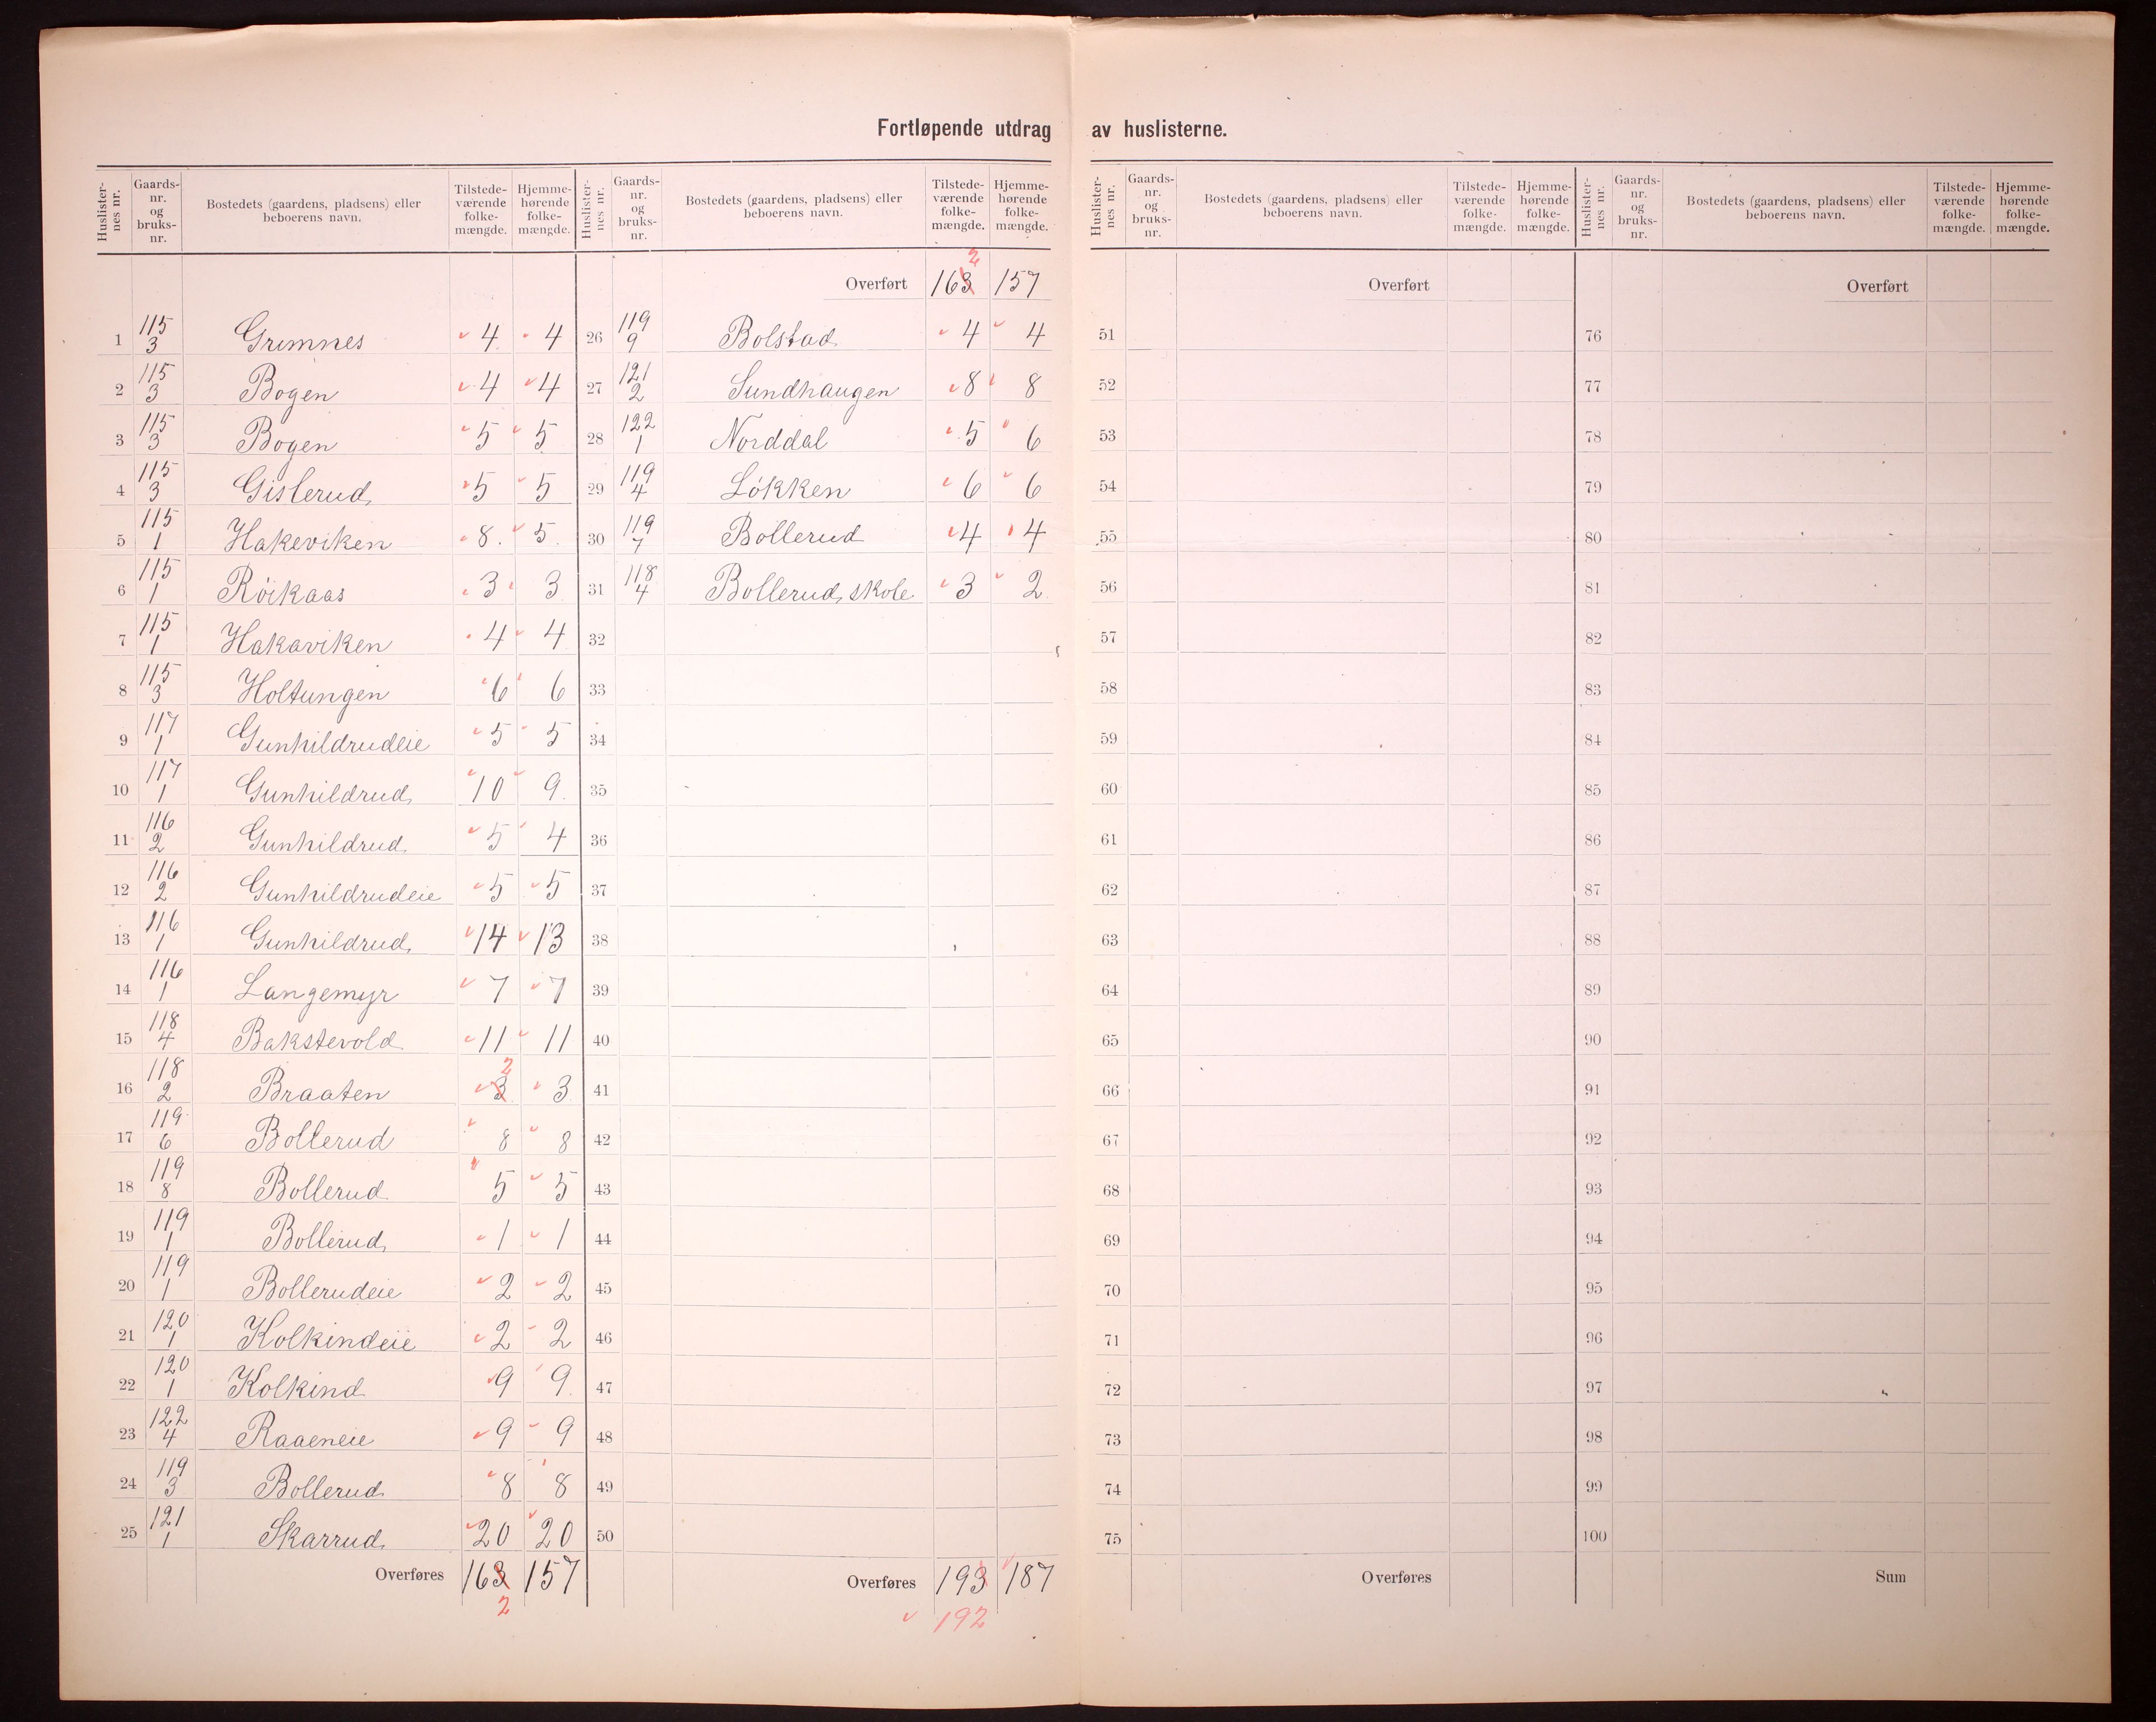 Fortløpende utdrag av huslisterne.
Huslister-nes nr. Gaards-nr. og bruks-nr. Bostedets (gaardens, pladsens) eller beboerens navn. Tilstede-værende folke-mængde. Hjemme-hørende folke-mængde.
1 115/3 Grimnes 4 4
2 115/3 Bogen 4 4
3 115/3 Bogen 5 5
4 115/3 Gislerud 5 5
5 115/1 Hakeviken 8. 5.
6 115/1 Röikaas 3 3
7 115/1 Hakaviken 4 4
8 115/3 Holtungen 6 6
9 117/1 Gunhildrudeie 5 5
10 117/1 Gunhildrud 10 9.
11 116/2 Gunhildrud 5 4
12 116/2 Gunhildrudeie 5 5
13 116/1 Gunhildrud 14 13
14 116/1 Langemyr 7 7
15 118/4 Bakstevold 11 11
16 118/2 Braaten 3 2 3
17 119/6 Bollerud 8 8
18 119/8 Bollerud 5 5
19 119/1 Bollerud 1 1
20 119/1 Bollerudeie 2 2
21 120/1 Kolkindeie 2 2
22 120/1 Kolkind 9 9.
23 122/4 Raaeneie 9 9
24 119/3 Bollerud 8 8
25 121/1 Skarrud 20 20
Overføres 163 157
2
Huslister-nes nr. Gaards-nr. og bruks-nr. Bostedets (gaardens, pladsens) eller beboerens navn. Tilstede-værende folke-mængde. Hjemme-hørende folke-mængde.
2
Overført 163 157
26 119/9 Bolstad 4 4
27 121/2 Sundhaugen 8 8
28 122/1 Norddal 5 6
29 119/4 Lökken 6 6
30 119/7 Bollerud 4 4
31 118/4 Bollerud skole 3 2
32
33
34
35
36
37
38
39
40
41
42
43
44
45
46
47
48
49
50
Overføres 193 187
192
Huslister-nes nr. Gaards-nr. og bruks-nr. Bostedets (gaardens, pladsens) eller beboerens navn. Tilstede-værende folke-mængde. Hjemme-hørende folke-mængde.
Overført
51
52
53
54
55
56
57
58
59
60
61
62
63
64
65
66
67
68
69
70
71
72
73
74
75
Overføres
Huslister-nes nr. Gaards-nr. og bruks-nr. Bostedets (gaardens, pladsens) eller beboerens navn. Tilstede-værende folke-mængde. Hjemme-hørende folke-mængde.
Overført
76
77
78
79
80
81
82
83
84
85
86
87
88
89
90
91
92
93
94
95
96
97
98
99
100
Sum